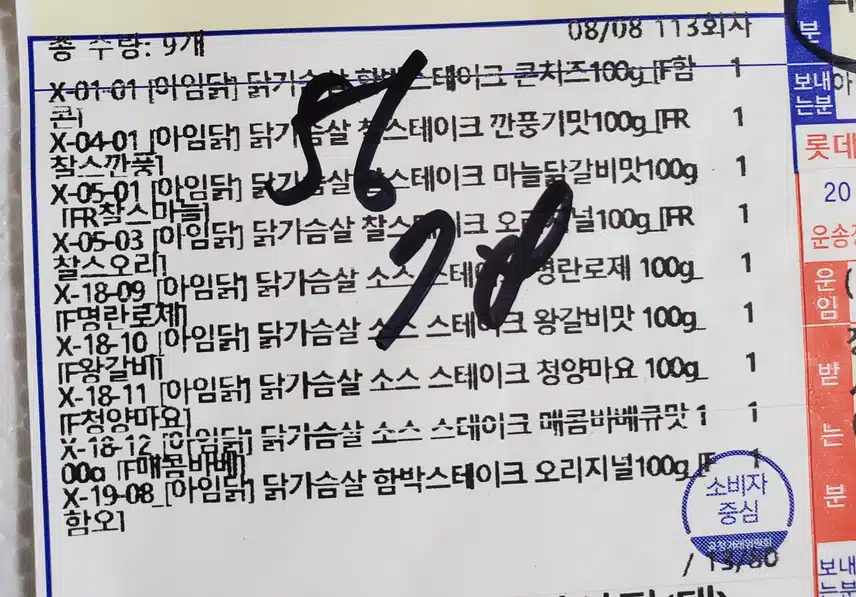 총 수량: 9개
08/08 113회사
X-01-01 [아임닭] 닭가슴살 함박스테이크 콘치즈100g_[F함 1
콘]
X-04-01_[아임닭] 닭가슴살 찰스테이크 깐풍기맛100g_[FR 1
찰스깐풍]
X-05-01_[아임닭] 닭가슴살 찰스테이크 마늘닭갈비맛100g 1
_[FR찰스마늘]
X-05-03_[아임닭] 닭가슴살 찰스테이크 오리지널100g_[FR 1
찰스오리]
X-18-09_[아임닭] 닭가슴살 소스 스테이크 명란로제 100g_ 1
[F명란로제]
X-18-10_[아임닭] 닭가슴살 소스 스테이크 왕갈비맛 100g_ 1
[F왕갈비]
X-18-11_[아임닭] 닭가슴살 소스 스테이크 청양마요 100g_ 1
[F청양마요]
X-18-12_[아임닭] 닭가슴살 소스 스테이크 매콤바베큐맛 1 1
00g_[F매콤바베]
X-19-08_[아임닭] 닭가슴살 함박스테이크 오리지널100g_[F 1
함오]
56
소비자
중심
공정거래위원회
/ 13/80
분
보내
는분
롯데
20
운송장
운
임
받
는
분
보내
는분